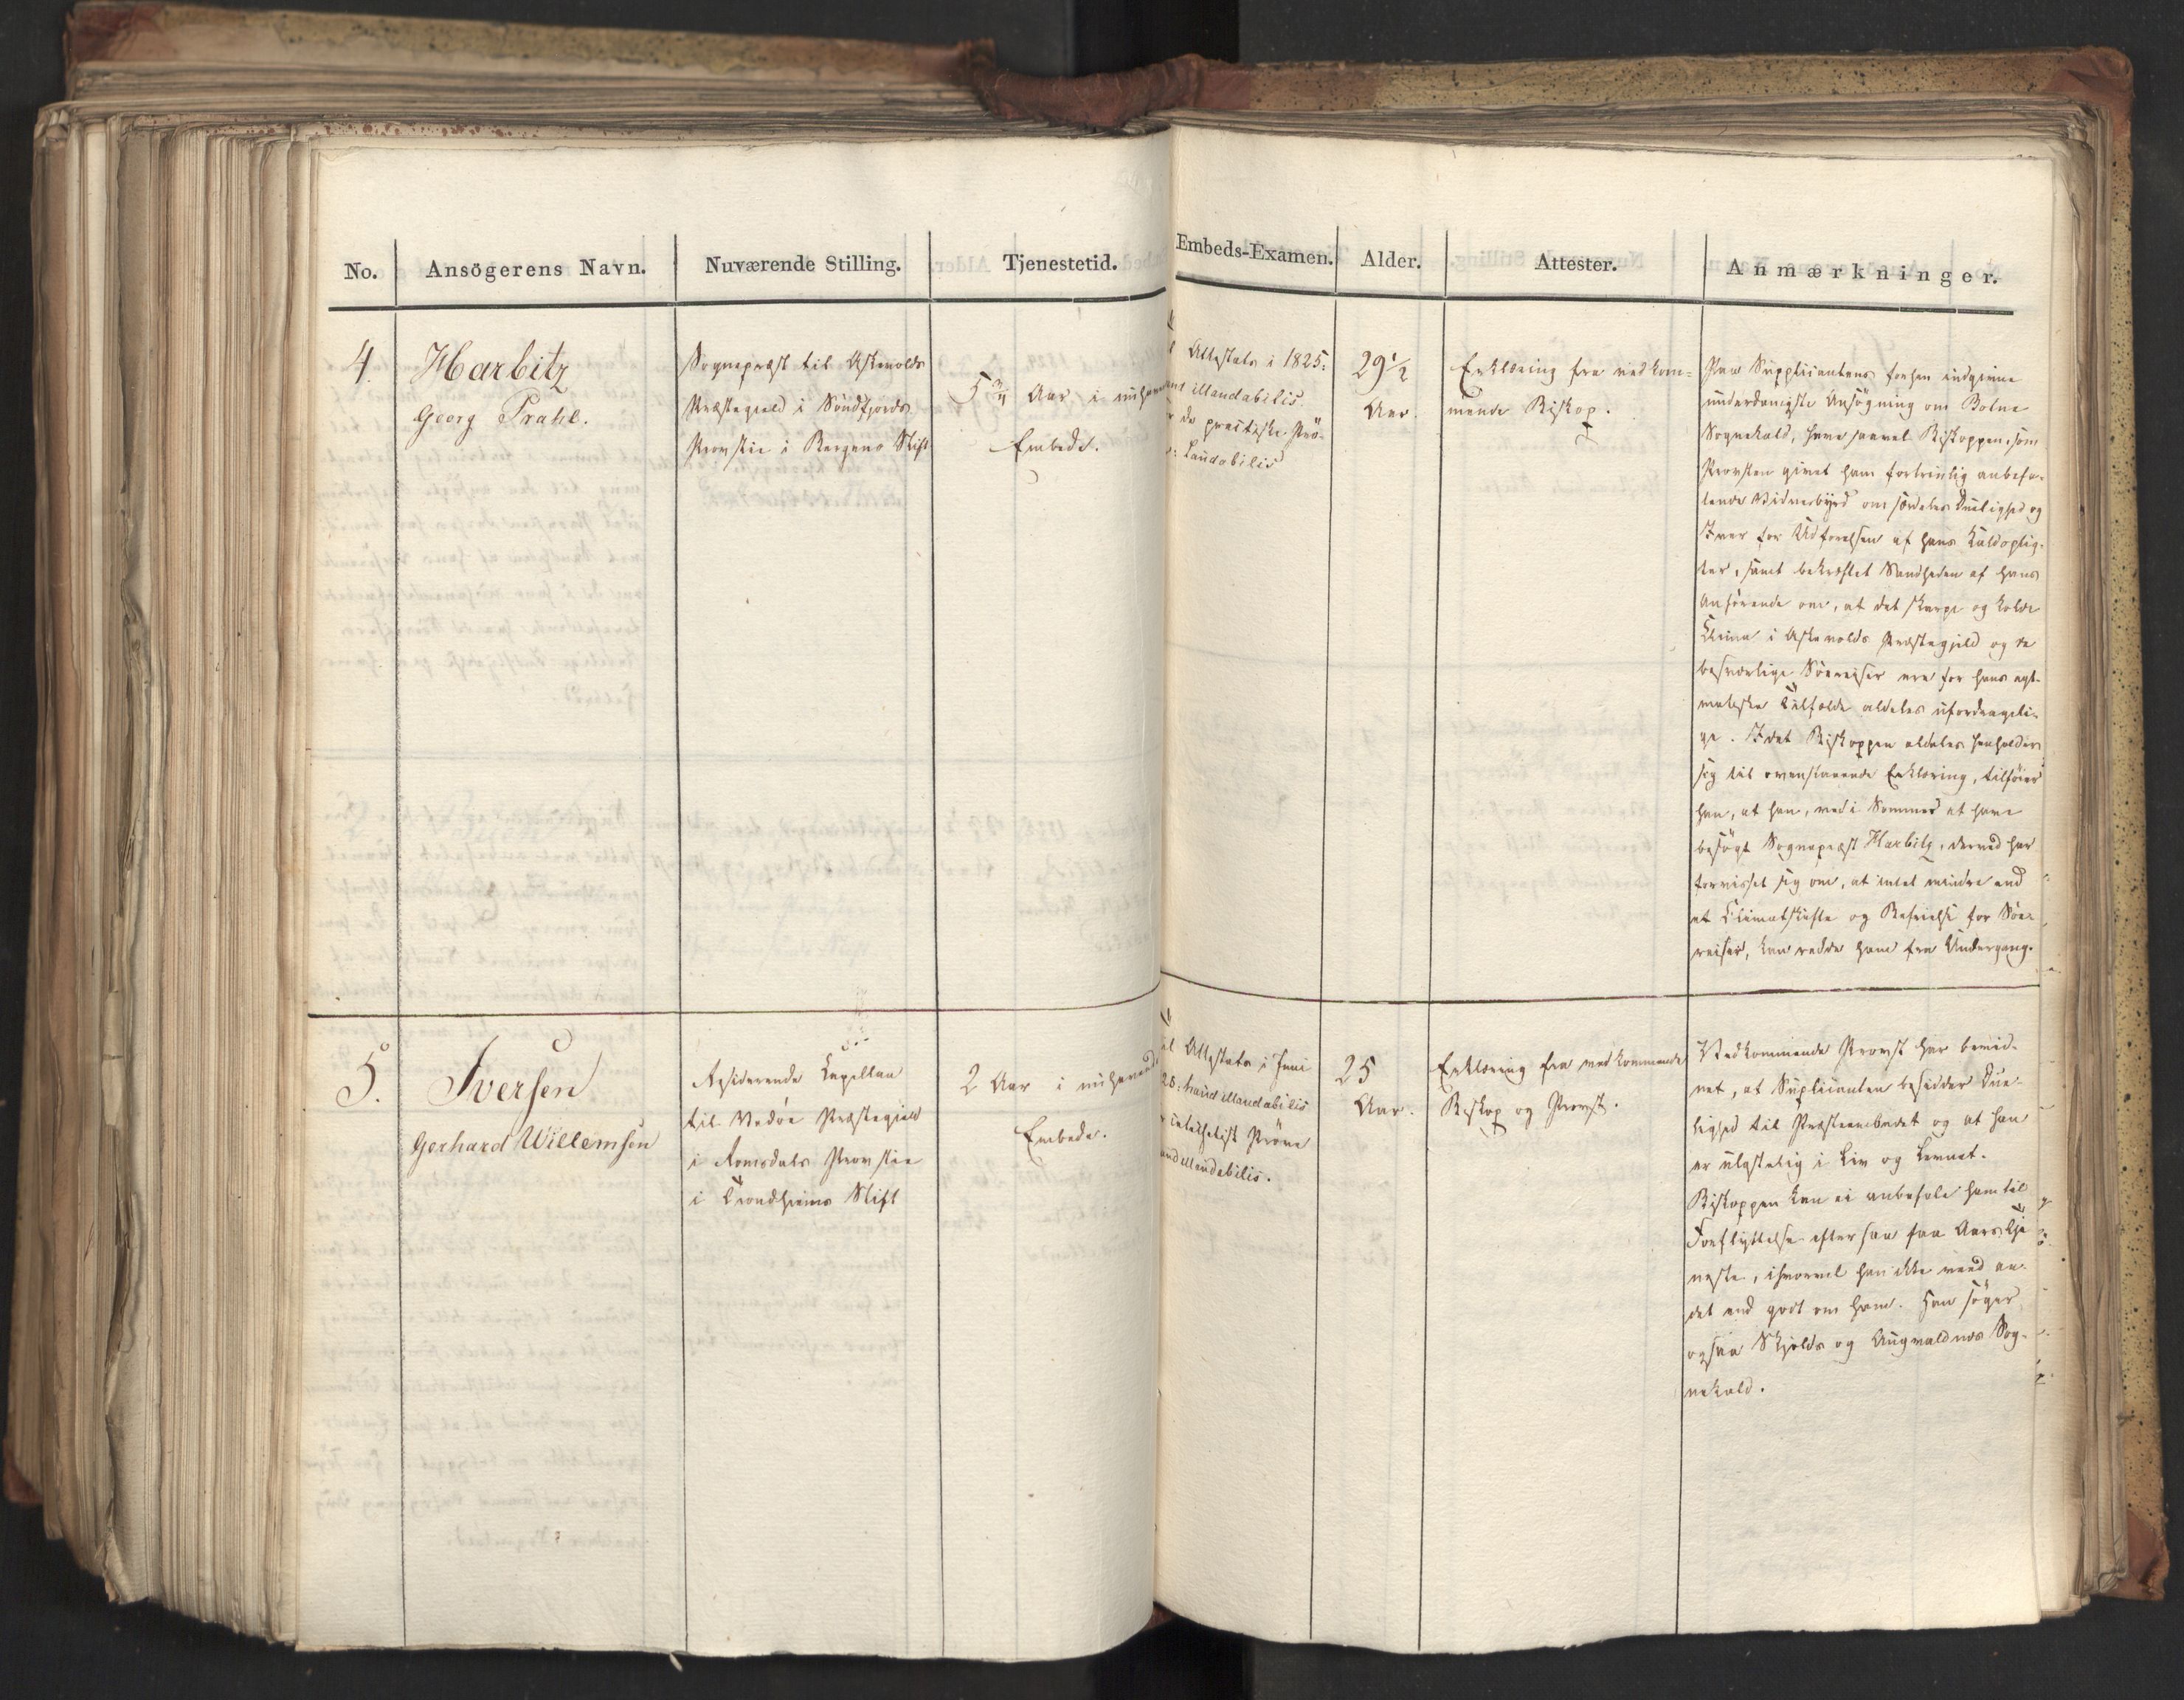 No.
Ansögerens Navn.
Nuværende Stilling.
Tjenestetid.
Embeds-Examen.
Alder.
Attester.
Anmærkninger.
4.
Harbitz
Georg Prahl.
Sognepræst til Askevolds
Præstegield i Söndfjords
Provstie i Bergens Stift
5 3/4 Aar i nuhavende
Embede.
Attestats i 1825:
illaudabilis.
de practiske Prö-
Laudabilis
29 1/2
Aar.
Erklæring fra vedkom=
mende Biskop.
Paa Supplicantens forhen indgivne
underdanigste Ansögning om Botne
Sognekald, have saavel Biskoppen, som
Provsten givet ham fortrinlig anbefa-
lende Vidnesbyrd om særdeles Duelighed og
Iver for Udförelsen af hans Kaldsplig-
ter, samt bekræftet Sandheden af hans
Anförende om, at det skarpe og kolde
Clima i Askevolds Præstegjeld og de
besværlige Söereiser ere for hans ast-
matiske Tilfælde aldeles ufordrageli-
ge. Idet Biskoppen aldeles henholder
sig til ovenstaaende Erklæring, tilföier
han, at han, ved i Sommer at have
besögt Sognepræst Harbitz, derved har
forvisset sig om, at intet mindre end
et Climatskifte og Befrielse for Söe-
reiser, kan redde ham fra Undergang.
5.
Iversen
Gerhard Willemsen
Residerende Capellan
til Vedöe Præstegield
i Romsdals Provstie
i Trondhjems Stift
2 Aar i nuhavende
Embede.
Attestats i Juni
28: haud illaudabilis
catechetisk Pröve
haud illaudabilis.
25
Aar.
Erklæring fra vedkommende
Biskop og Provst.
Vedkommende Provst har bevid-
net, at Suplicanten besidder Due-
lighed til Præsteembedet og at han
er ulastelig i Liv og Levnet.
Biskoppen kan ei anbefale ham til
Forflyttelse efter saa faa Aars Tje
neste, ihvorvel han ikke veed an-
det end godt om ham. Han söger
ogsaa Skjolds og Augvaldnæs Sog-
nekald.